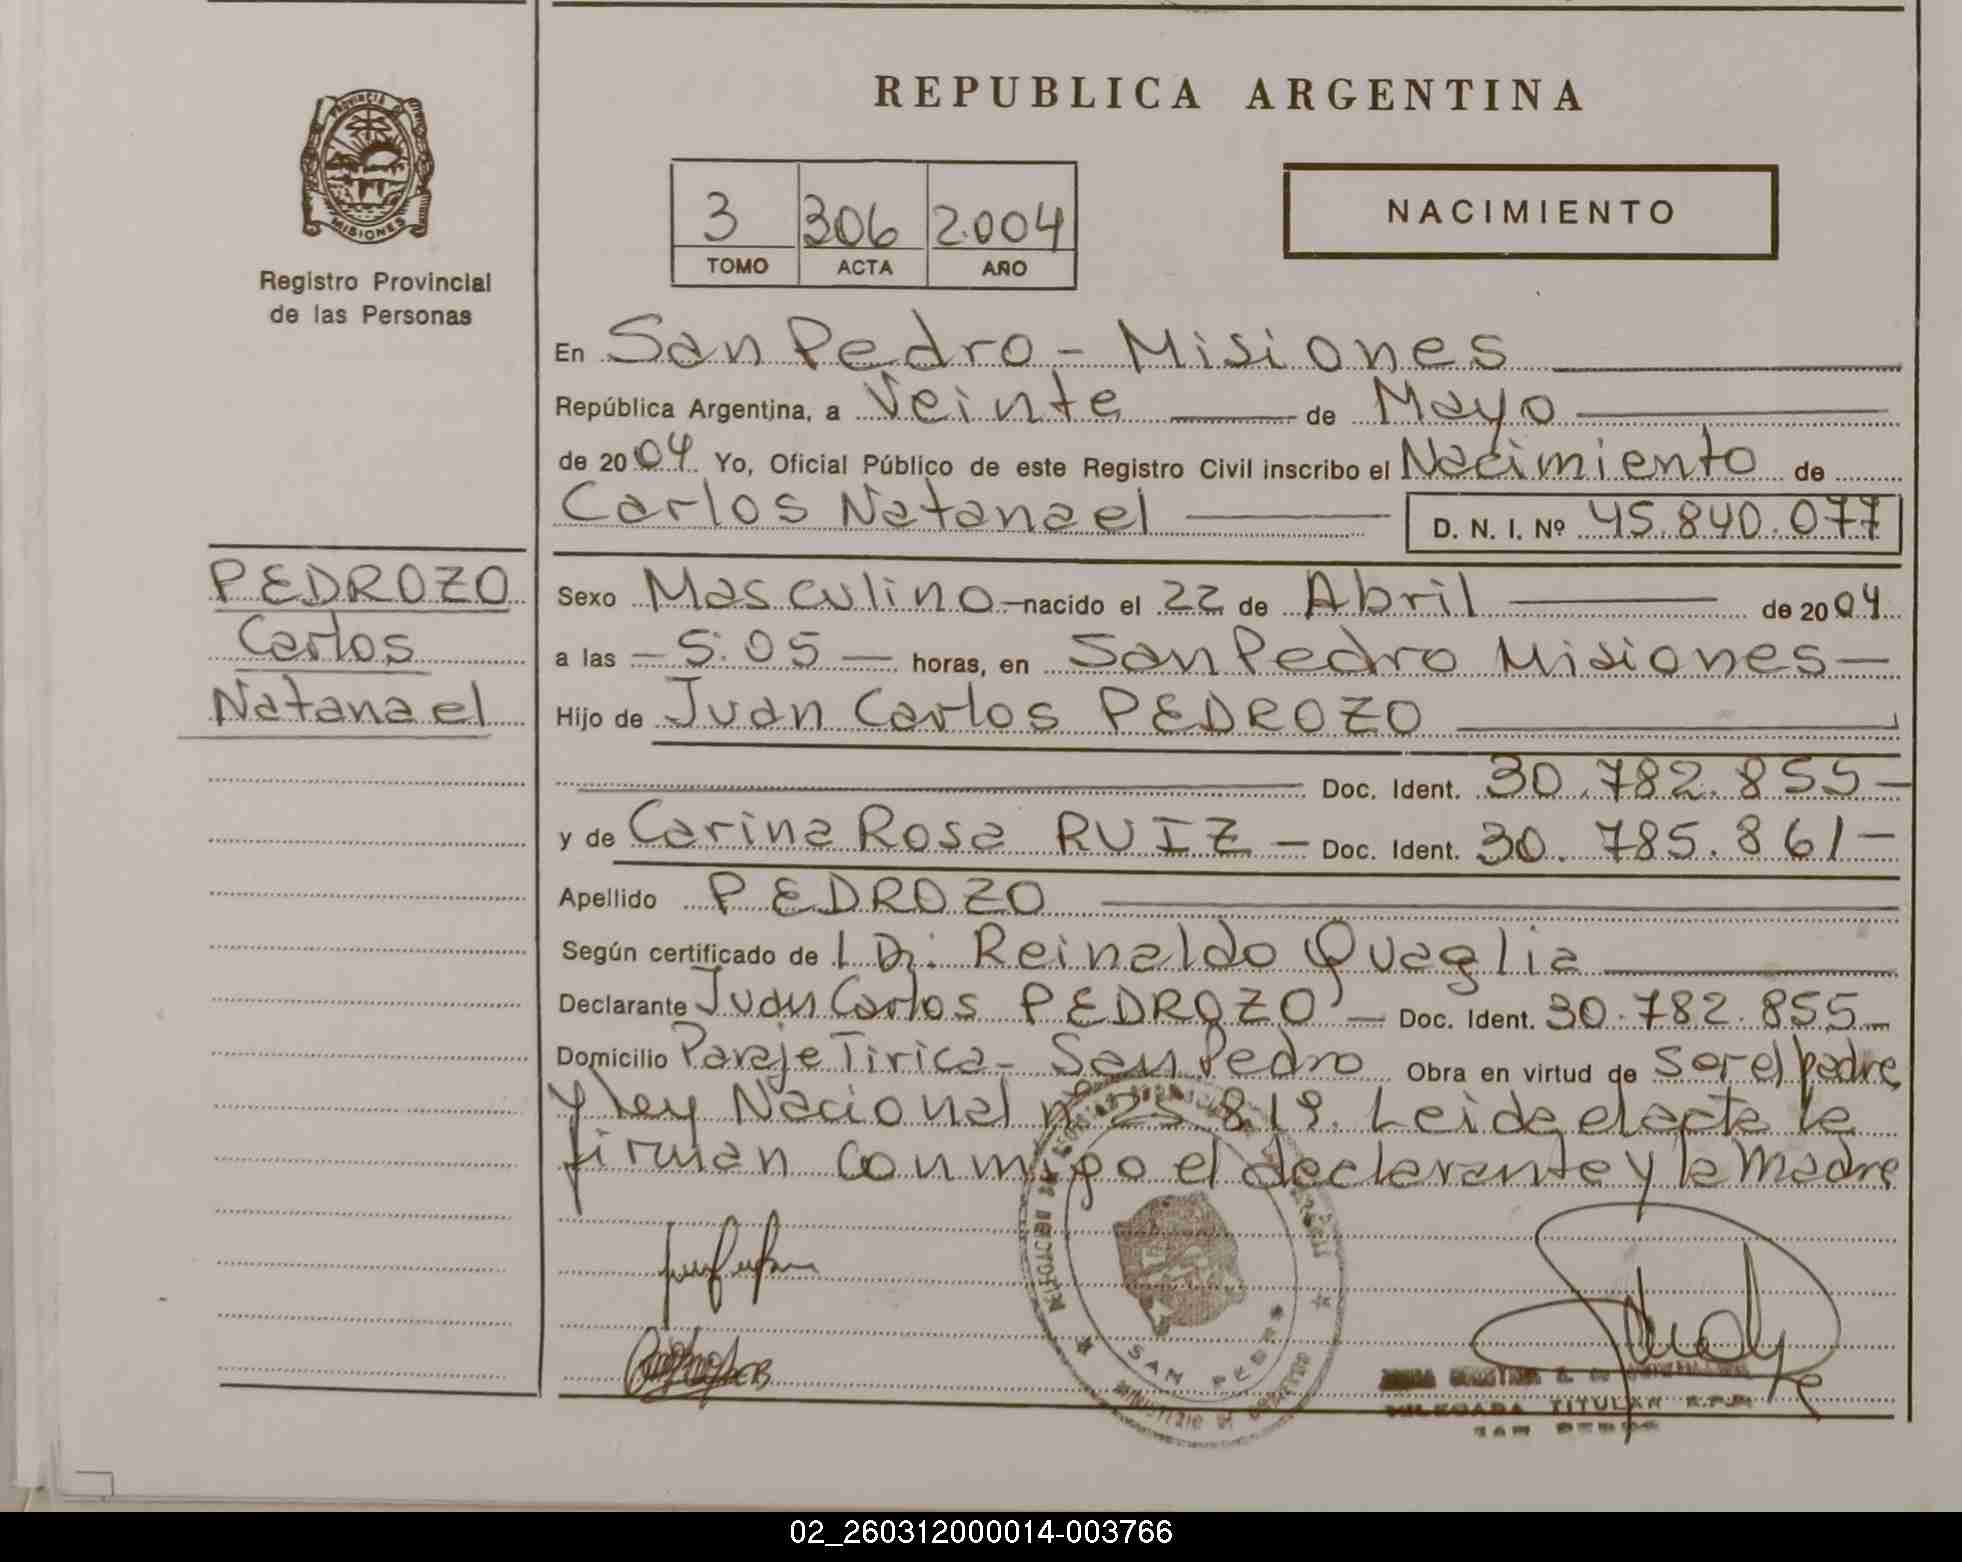 REPUBLICA ARGENTINA
PROVINCIA
MISIONES
Registro Provincial
de las Personas
3 306 2.004
TOMO ACTA AÑO
NACIMIENTO
En San Pedro - Misiones
República Argentina, a Veinte de Mayo
de 2004 Yo, Oficial Público de este Registro Civil inscribo el Nacimiento de
Carlos Natanael D. N. I. Nº 45.840.077
PEDROZO
Carlos
Natanael
Sexo Masculino nacido el 22 de Abril de 2004
a las - 5:05 - horas, en San Pedro Misiones -
Hijo de Juan Carlos PEDROZO
Doc. Ident. 30.782.855 -
y de Carina Rosa RUIZ - Doc. Ident. 30.785.861 -
Apellido PEDROZO
Según certificado de l Dr. Reinaldo Quaglia
Declarante Juan Carlos PEDROZO - Doc. Ident. 30.782.855
Domicilio Paraje Tirica - San Pedro Obra en virtud de ser el padre
y ley Nacional nº 25.819. Leida el acta la
firman conmigo el declarante y la madre
SAN PEDRO
TITULAR R.P.P.
SAN PEDRO
02_260312000014-003766